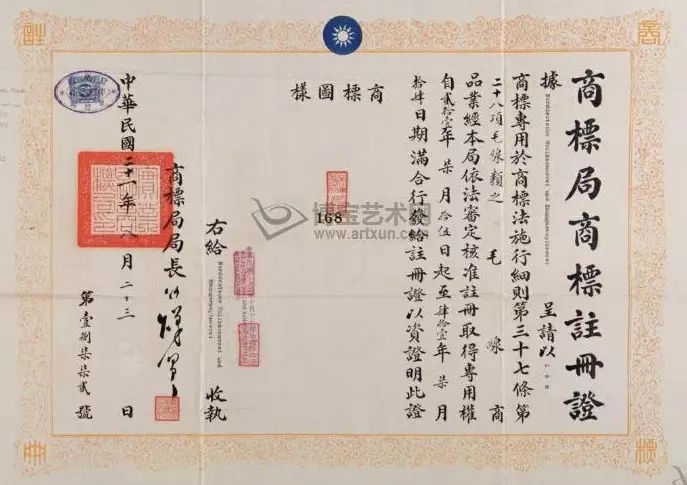 商標局商標註冊證
據 Norddeutsche Wollkämmerei und Kammgarnspinnerei 呈請以 168
商標專用於商標法施行細則第三十七條第
二十八項毛線類之毛線商
品業經本局依法審定核准註冊取得專用權
自貳拾壹年柒月拾伍日起至肆拾壹年柒月
拾肆日期滿合行發給註冊證以資證明此證
商標圖樣
168
博宝艺术网
www.artxun.com
右給 Norddeutsche Wollkämmerei und Kammgarnspinnerei 收執
商標局局長
中華民國二十一年八月二十三日
第壹捌柒柒貳號